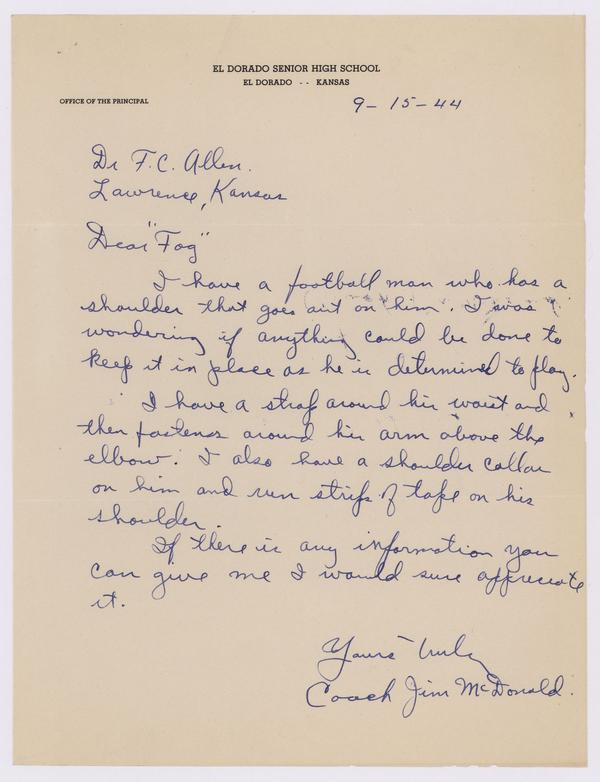 EL DORADO SENIOR HIGH SCHOOL
EL DORADO -- KANSAS
OFFICE OF THE PRINCIPAL
9-15-44
Dr F.C. Allen.
Lawrence, Kansas
Dear "Fog"
I have a football man who has a
shoulder that goes out on him. I was
wondering if anything could be done to
keep it in place as he is determined to play.
I have a strap around his waist and
then fastens around his arm above the
elbow. I also have a shoulder collar
on him and run strips of tape on his
shoulder.
If there is any information you
can give me I would sure appreciate
it.
Yours truly
Coach Jim McDonald.